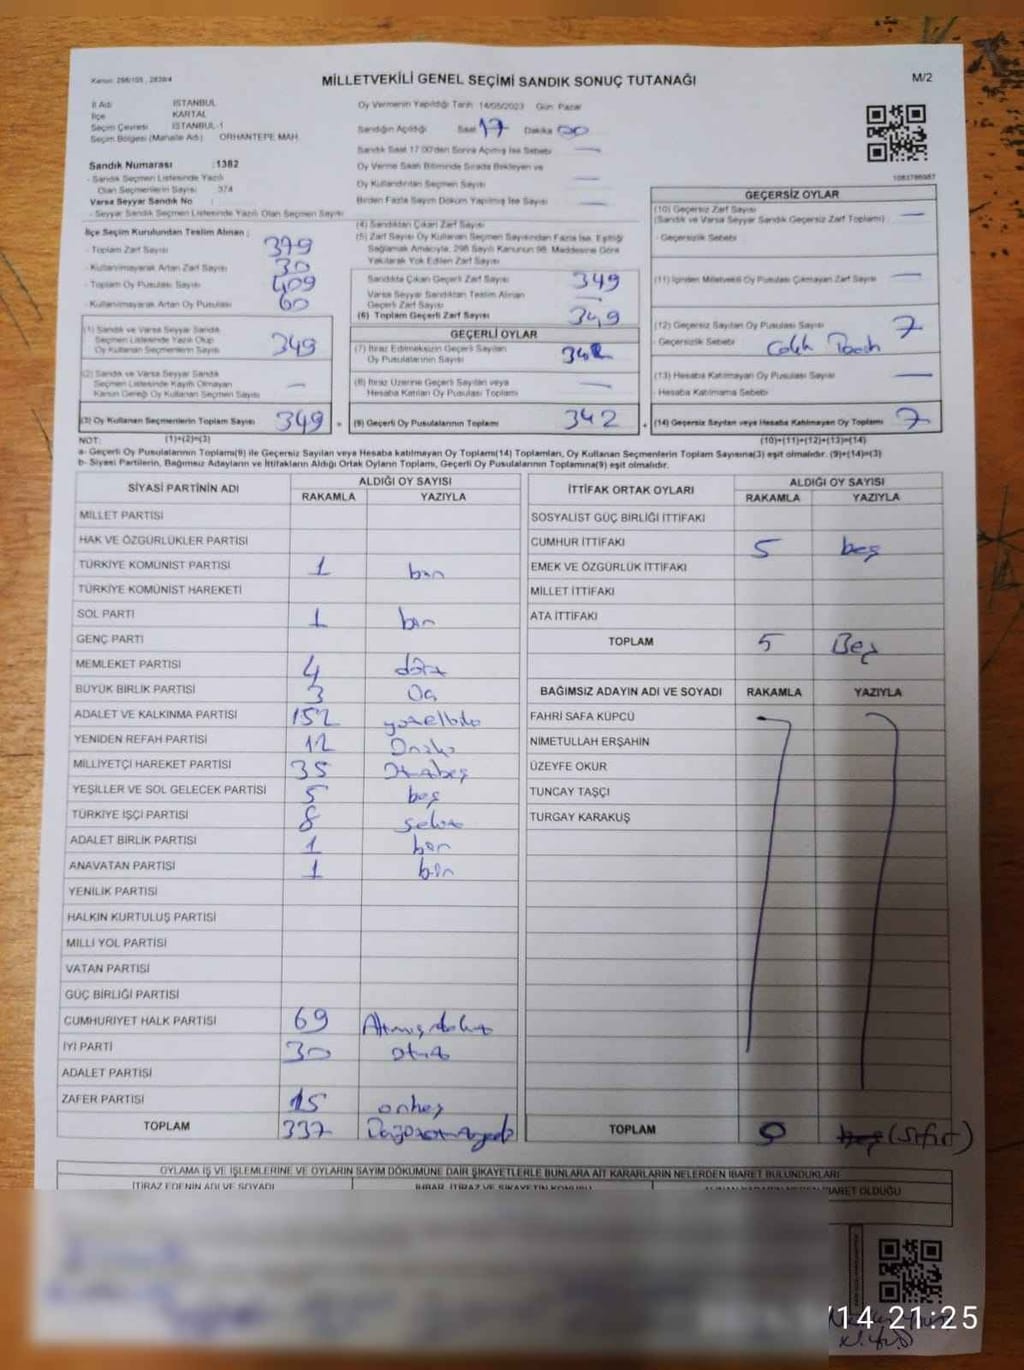 Kanun: 298/105 , 2839/4
MİLLETVEKİLİ GENEL SEÇİMİ SANDIK SONUÇ TUTANAĞI
M/2
İl Adı İSTANBUL
İlçe KARTAL
Seçim Çevresi İSTANBUL-1
Seçim Bölgesi (Mahalle Adı) ORHANTEPE MAH.
Sandık Numarası : 1382
- Sandık Seçmen Listesinde Yazılı
Olan Seçmenlerin Sayısı : 374
Varsa Seyyar Sandık No
- Seyyar Sandık Seçmen Listesinde Yazılı Olan Seçmen Sayısı
İlçe Seçim Kurulundan Teslim Alınan ;
- Toplam Zarf Sayısı 379
- Kullanılmayarak Artan Zarf Sayısı 30
- Toplam Oy Pusulası Sayısı 409
- Kullanılmayarak Artan Oy Pusulası 60
(1) Sandık ve Varsa Seyyar Sandık
Seçmen Listesinde Yazılı Olup
Oy Kullanan Seçmenlerin Sayısı 349
(2) Sandık ve Varsa Seyyar Sandık
Seçmen Listesinde Kayıtlı Olmayan
Kanun Gereği Oy Kullanan Seçmen Sayısı —
(3) Oy Kullanan Seçmenlerin Toplam Sayısı 349 =
Oy Vermenin Yapıldığı Tarih 14/05/2023 Gün: Pazar
Sandığın Açıldığı Saat 17 Dakika 00
Sandık Saat 17:00'den Sonra Açılmış İse Sebebi —
Oy Verme Saati Bitiminde Sırada Bekleyen ve
Oy Kullandırılan Seçmen Sayısı —
Birden Fazla Sayım Döküm Yapılmış İse Sayısı —
(4) Sandıktan Çıkan Zarf Sayısı
(5) Zarf Sayısı Oy Kullanan Seçmen Sayısından Fazla İse, Eşitliği
Sağlamak Amacıyla, 298 Sayılı Kanunun 98. Maddesine Göre
Yakılarak Yok Edilen Zarf Sayısı
Sandıkta Çıkan Geçerli Zarf Sayısı 349
Varsa Seyyar Sandıktan Teslim Alınan
Geçerli Zarf Sayısı —
(6) Toplam Geçerli Zarf Sayısı 349
GEÇERLİ OYLAR
(7) İtiraz Edilmeksizin Geçerli Sayılan
Oy Pusulalarının Sayısı 342
(8) İtiraz Üzerine Geçerli Sayılan veya
Hesaba Katılan Oy Pusulası Toplamı —
(9) Geçerli Oy Pusulalarının Toplamı 342 +
1083786987
GEÇERSİZ OYLAR
(10) Geçersiz Zarf Sayısı
(Sandık ve Varsa Seyyar Sandık Geçersiz Zarf Toplamı) —
- Geçersizlik Sebebi
(11) İçinden Milletvekili Oy Pusulası Çıkmayan Zarf Sayısı —
(12) Geçersiz Sayılan Oy Pusulası Sayısı 7
- Geçersizlik Sebebi
(13) Hesaba Katılmayan Oy Pusulası Sayısı —
- Hesaba Katılmama Sebebi
(14) Geçersiz Sayılan veya Hesaba Katılmayan Oy Toplamı 7
NOT: (1)+(2)=(3) (10)+(11)+(12)+(13)=(14)
a- Geçerli Oy Pusulalarının Toplamı(9) ile Geçersiz Sayılan veya Hesaba katılmayan Oy Toplamı(14) Toplamları, Oy Kullanan Seçmenlerin Toplam Sayısına(3) eşit olmalıdır. (9)+(14)=(3)
b- Siyasi Partilerin, Bağımsız Adayların ve İttifakların Aldığı Ortak Oyların Toplamı, Geçerli Oy Pusulalarının Toplamına(9) eşit olmalıdır.
SİYASİ PARTİNİN ADI ALDIĞI OY SAYISI
RAKAMLA YAZIYLA
MİLLET PARTİSİ
HAK VE ÖZGÜRLÜKLER PARTİSİ
TÜRKİYE KOMÜNİST PARTİSİ 1 bir
TÜRKİYE KOMÜNİST HAREKETİ
SOL PARTİ 1 bir
GENÇ PARTİ
MEMLEKET PARTİSİ 4 dört
BÜYÜK BİRLİK PARTİSİ 3 Üç
ADALET VE KALKINMA PARTİSİ 152 yüzelliiki
YENİDEN REFAH PARTİSİ 12 Oniki
MİLLİYETÇİ HAREKET PARTİSİ 35 Otuzbeş
YEŞİLLER VE SOL GELECEK PARTİSİ 5 beş
TÜRKİYE İŞÇİ PARTİSİ 8 sekiz
ADALET BİRLİK PARTİSİ 1 bir
ANAVATAN PARTİSİ 1 bir
YENİLİK PARTİSİ
HALKIN KURTULUŞ PARTİSİ
MİLLİ YOL PARTİSİ
VATAN PARTİSİ
GÜÇ BİRLİĞİ PARTİSİ
CUMHURİYET HALK PARTİSİ 69 Atmışdokuz
İYİ PARTİ 30 otuz
ADALET PARTİSİ
ZAFER PARTİSİ 15 onbeş
TOPLAM 337 Üçyüzotuzyedi
İTTİFAK ORTAK OYLARI ALDIĞI OY SAYISI
RAKAMLA YAZIYLA
SOSYALİST GÜÇ BİRLİĞİ İTTİFAKI
CUMHUR İTTİFAKI 5 beş
EMEK VE ÖZGÜRLÜK İTTİFAKI
MİLLET İTTİFAKI
ATA İTTİFAKI
TOPLAM 5 Beş
BAĞIMSIZ ADAYIN ADI VE SOYADI RAKAMLA YAZIYLA
FAHRİ SAFA KÜPCÜ
NİMETULLAH ERŞAHİN
ÜZEYFE OKUR
TUNCAY TAŞÇI
TURGAY KARAKUŞ
TOPLAM 0 (Sıfır)
OYLAMA İŞ VE İŞLEMLERİNE VE OYLARIN SAYIM DÖKÜMÜNE DAİR ŞİKAYETLERLE BUNLARA AİT KARARLARIN NELERDEN İBARET BULUNDUKLARI
İTİRAZ EDENİN ADI VE SOYADI İHBAR, İTİRAZ VE ŞİKAYETİN KONUSU İBARET OLDUĞU
/14 21:25